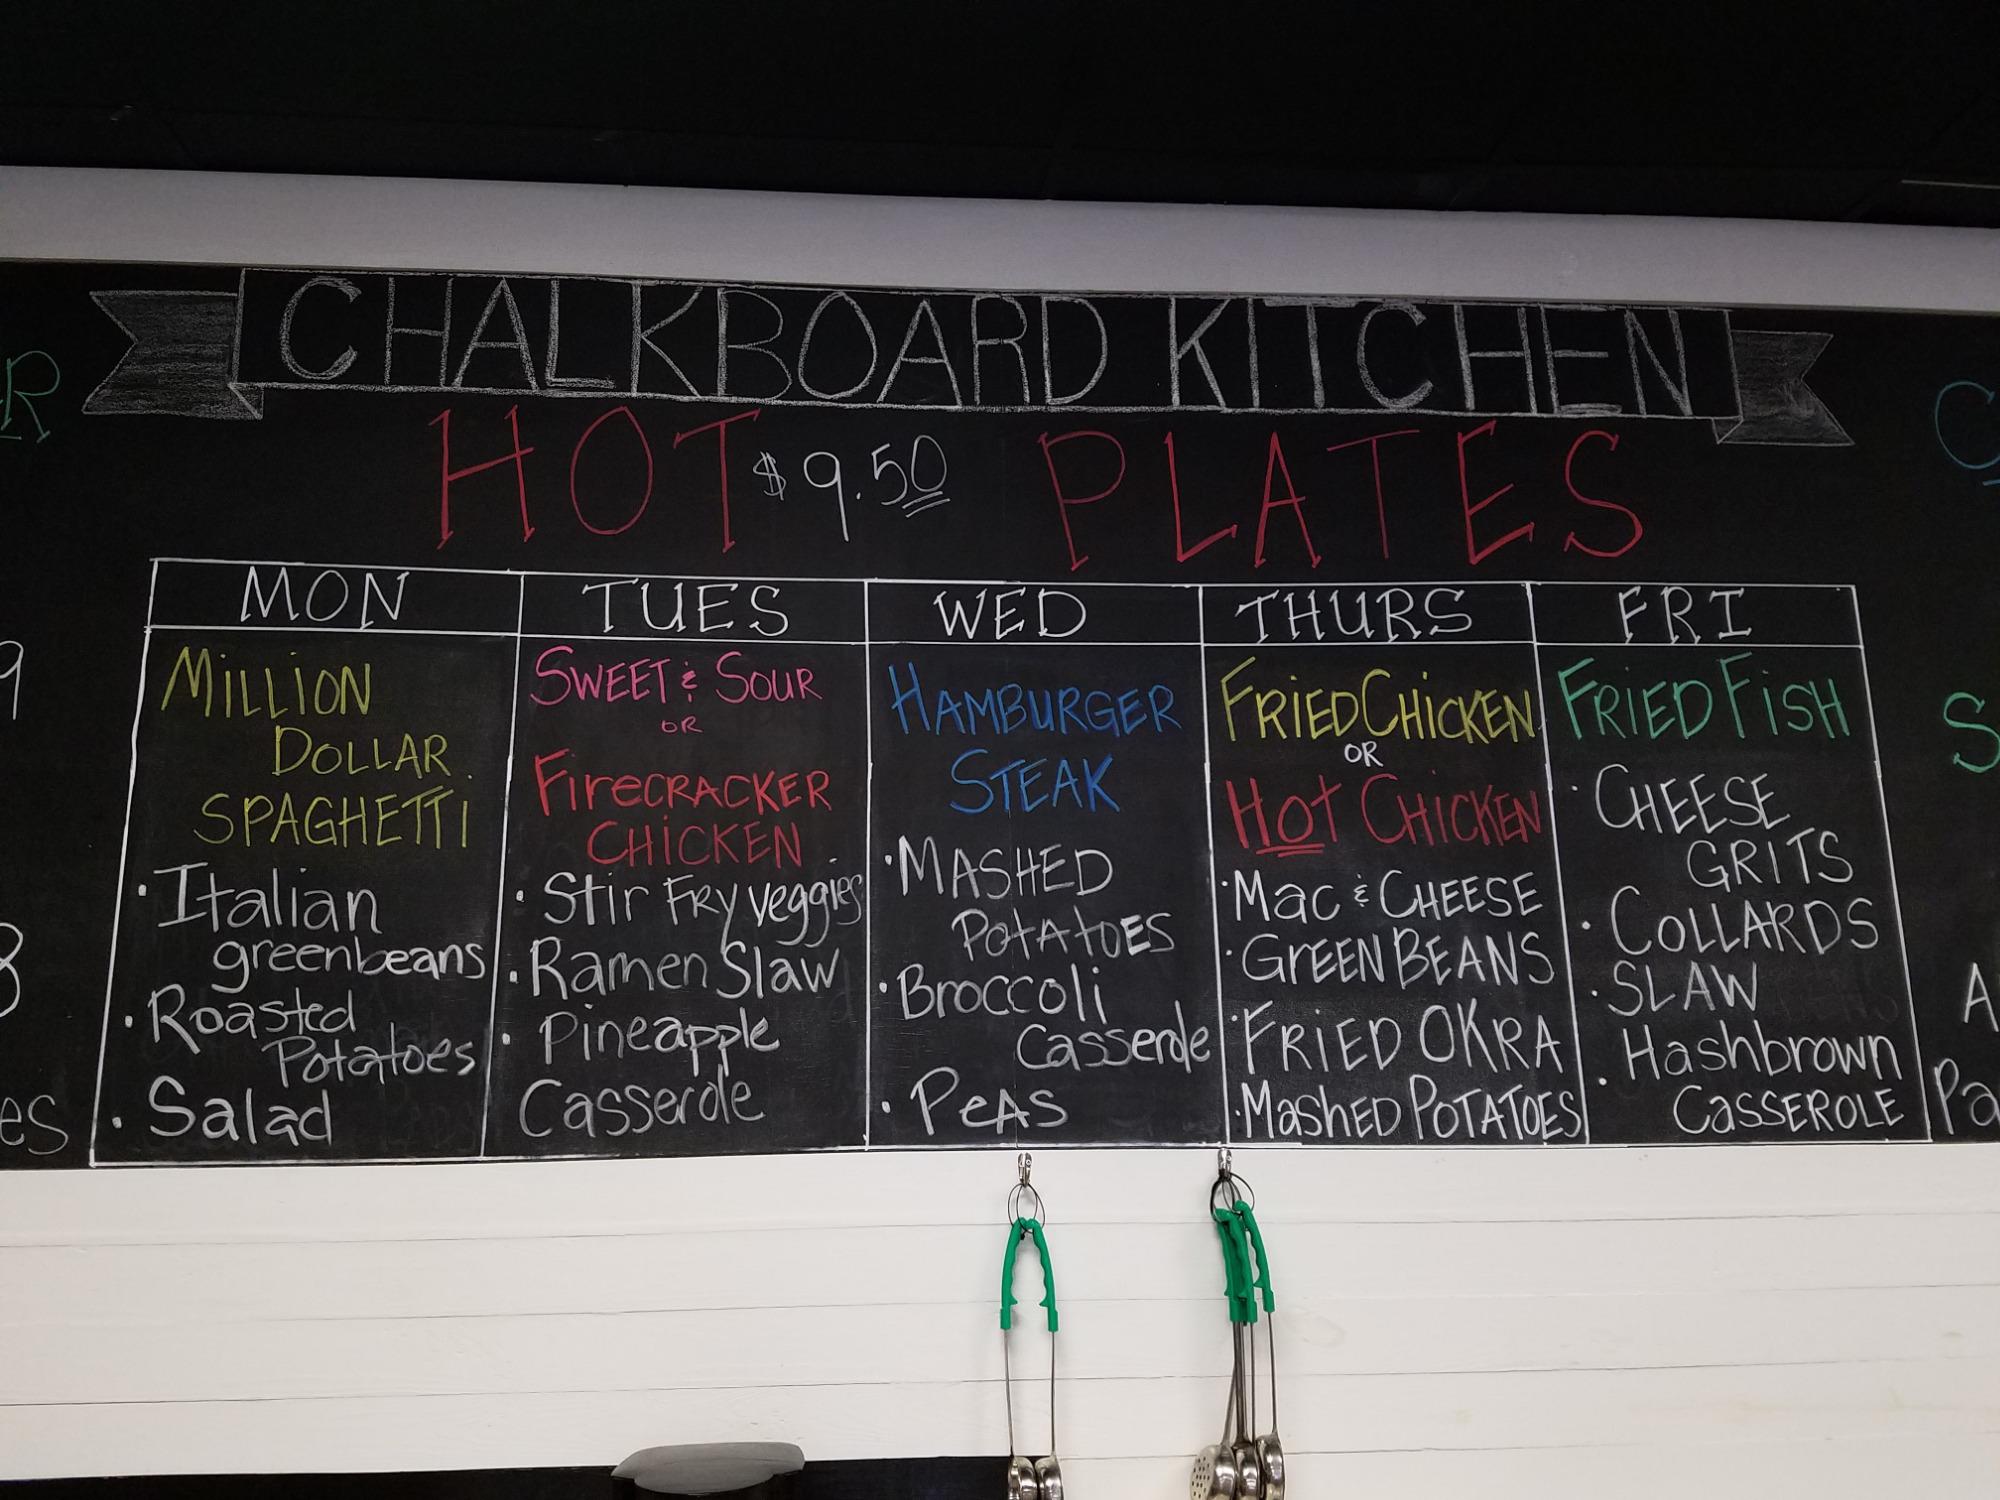 CHALKBOARD KITCHEN
HOT $9.50 PLATES
MON
MILLION
DOLLAR
SPAGHETTI
· Italian
greenbeans
· Roasted
Potatoes
· Salad
TUES
SWEET & SOUR
OR
FIRECRACKER
CHICKEN
· Stir FRY veggies
· Ramen Slaw
· Pineapple
Casserole
WED
HAMBURGER
STEAK
· MASHED
POTATOES
· Broccoli
Casserole
· PEAS
THURS
FRIED CHICKEN
OR
HOT CHICKEN
· Mac & CHEESE
· GREEN BEANS
· FRIED OKRA
· MASHED POTATOES
FRI
FRIED FISH
· CHEESE
GRITS
· COLLARDS
· SLAW
· Hashbrown
CASSEROLE